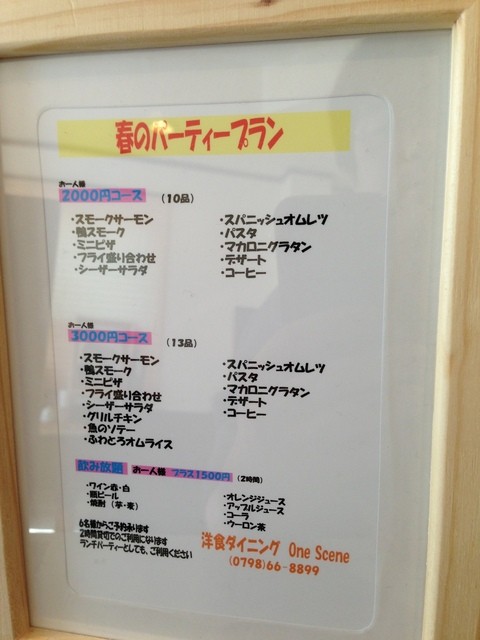 春のパーティープラン
お一人様
2000円コース (10品)
・スモークサーモン
・鴨スモーク
・ミニピザ
・フライ盛り合わせ
・シーザーサラダ
・スパニッシュオムレツ
・パスタ
・マカロニグラタン
・デザート
・コーヒー
お一人様
3000円コース (13品)
・スモークサーモン
・鴨スモーク
・ミニピザ
・フライ盛り合わせ
・シーザーサラダ
・グリルチキン
・魚のソテー
・ふわとろオムライス
・スパニッシュオムレツ
・パスタ
・マカロニグラタン
・デザート
・コーヒー
飲み放題 お一人様 プラス1500円 (2時間)
・ワイン赤・白
・瓶ビール
・焼酎 (芋・麦)
・オレンジジュース
・アップルジュース
・コーラ
・ウーロン茶
6名様からご予約承ります
2時間貸切でのご利用になります
ランチパーティーとしても、ご利用ください
洋食ダイニング One Scene
(0798)66-8899